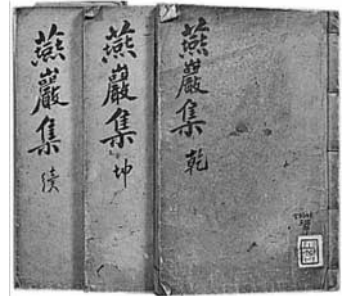 燕巖集 乾
燕巖集 坤
燕巖集 续